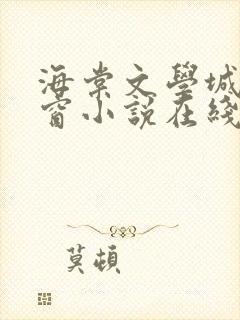 海棠文學城
窗小説在綫
莫頓